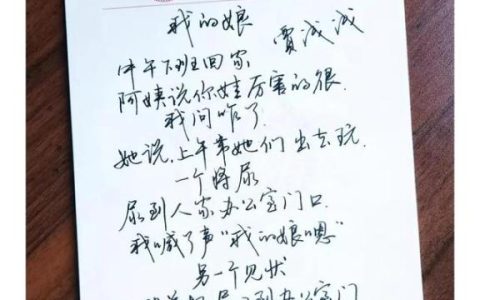 我的娘
贾浅浅
中午下班回家
阿姨说你娃厉害的很
我问咋了
她说,上午带她们出去玩
一个将尿
尿到人家办公室门口
我喊了声“我的娘嗯”
另一个见状
到办公室门